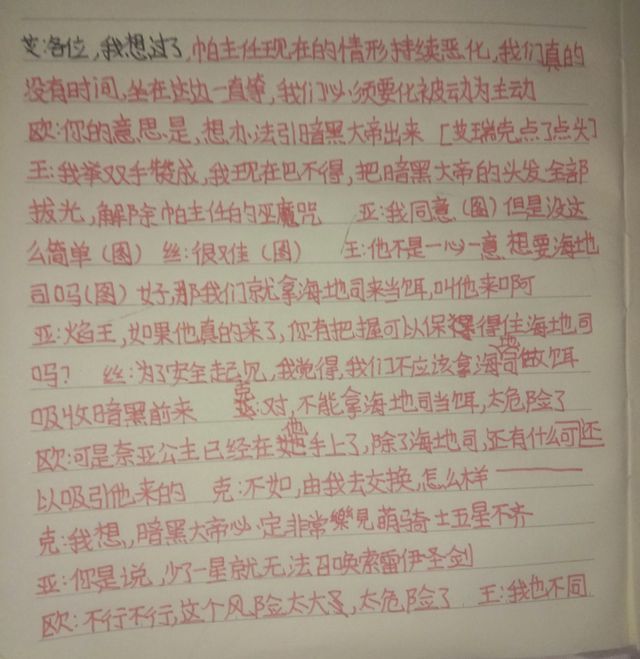 艾:各位,我想过了,帕主任现在的情形持续恶化,我们真的
没有时间,坐在这边一直等,我们必须要化被动为主动
欧:你的意思是,想办法引暗黑大帝出来 [艾瑞克点了点头]
王:我举双手赞成,我现在巴不得,把暗黑大帝的头发全部
拔光,解除帕主任的巫魔咒 亚:我同意(图)但是没这
么简单(图) 丝:很难(图) 王:他不是一心一意想要海地
司吗(图)好,那我们就拿海地司来当饵,叫他来啊
亚:焰王,如果他真的来了,你有把握可以保得住海地司
吗? 丝:为了安全起见,我觉得,我们不应该拿海地司做饵
吸收暗黑前来 克:对,不能拿海地司当饵,太危险了
欧:可是奈亚公主已经在他手上了,除了海地司,还有什么可还
以吸引他来的 克:不如,由我去交换,怎么样——
克:我想,,暗黑大帝必定非常樂见萌骑士五星不齐
亚:你是说,少了一星就无法召唤索雷伊圣剑
欧:不行不行,这个风险太大了,太危险了 王:我也不同